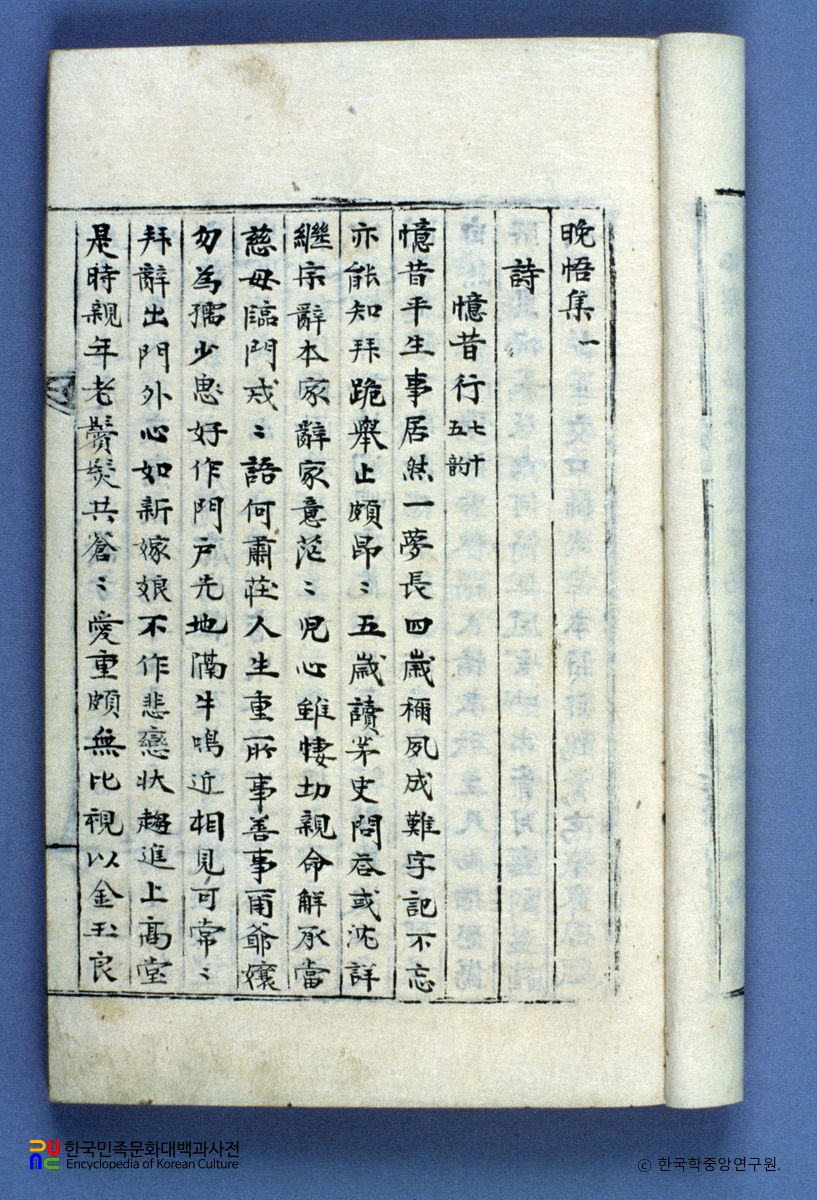 晩悟集一
詩
憶昔行七十五韵
憶昔平生事居然一夢長四歲襧夙成難字記不忘
亦能知拜跪舉止頗昻〻五歲讀茅史問答或沈詳
繼宗辭本家辭家意茫〻児心雖悽切親命解承當
慈母臨門戒〻語何肅莊人生重所事善事甭爺孃
勿為孺少思好作門户光地隔牛鳴近相見可常〻
拜辭出門外心如新嫁娘不作悲戀狀趨進上髙堂
是時親年老鬢髮共蒼〻愛重頗無比視以金玉良
한국민족문화대백과사전
Encyclopedia of Korean Culture
© 한국학중앙연구원.